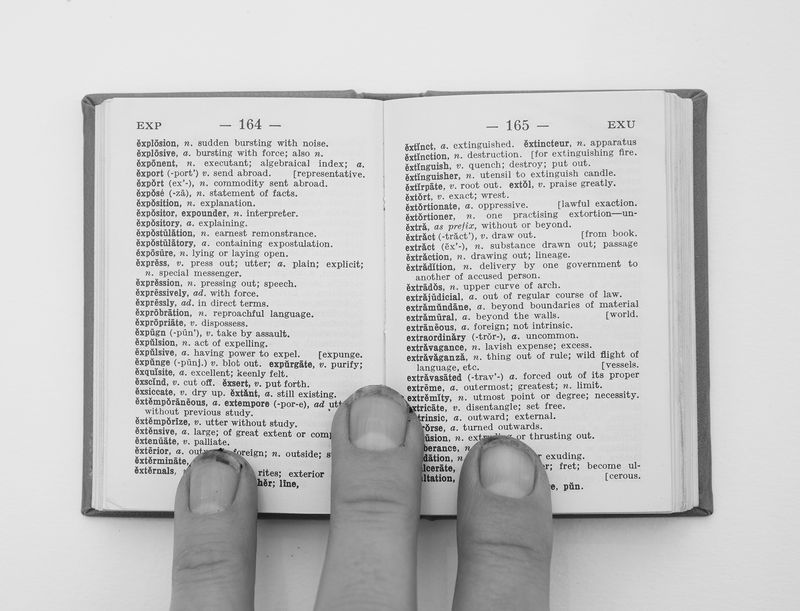 EXP — 164 —
ĕxplōsion, n. sudden bursting with noise.
ĕxplōsive, a. bursting with force; also n.
ĕxpōnent, n. executant; algebraical index; a.
ĕxport (-port') v. send abroad. [representative.
ĕxpōrt (ex'-), n. commodity sent abroad.
ĕxpōsé (-zā), n. statement of facts.
ĕxpōsition, n. explanation.
ĕxpŏsitor, expounder, n. interpreter.
ĕxpŏsitory, a. explaining.
ĕxpŏstūlātion, n. earnest remonstrance.
ĕxpŏstūlātory, a. containing expostulation.
ĕxpōsūre, n. lying or laying open.
ĕxprĕss, v. press out; utter; a. plain; explicit;
n. special messenger.
ĕxprĕssion, n. pressing out; speech.
ĕxprĕssively, ad. with force.
ĕxprĕssly, ad. in direct terms.
ĕxprōbrātion, n. reproachful language.
ĕxprōpriāte, v. dispossess.
ĕxpūgn (-pūn'), v. take by assault.
ĕxpŭlsion, n. act of expelling.
ĕxpŭlsive, a. having power to expel. [expunge.
ĕxpŭnge (-pŭnj.) v. blot out. expŭrgāte, v. purify;
ĕxquĭsĭte, a. excellent; keenly felt.
ĕxscĭnd, v. cut off. ĕxsert, v. put forth.
ĕxsiccate, v. dry up. ĕxtănt, a. still existing.
ĕxtĕmpōrānĕous, a. extempore (-por-e), ad
without previous study.
ĕxtĕmpōrīze, v. utter without study.
ĕxtĕnsive, a. large; of great extent or
ĕxtĕnūāte, v. palliate.
ĕxtērior, a. foreign; n. outside;
ĕxtĕrmināte,
ĕxtĕrnals, rites; exterior
hĕr; līne,
— 165 — EXU
ĕxtĭnct, a. extinguished. ĕxtincteur, n. apparatus
ĕxtĭnction, n. destruction. [for extinguishing fire.
ĕxtĭnguish, v. quench; destroy; put out.
ĕxtĭnguisher, n. utensil to extinguish candle.
ĕxtĭrpāte, v. root out. extŏl, v. praise greatly.
ĕxtŏrt, v. exact; wrest.
ĕxtŏrtionate, a. oppressive. [lawful exaction.
ĕxtŏrtioner, n. one practising extortion—un-
ĕxtrā, as prefix, without or beyond.
ĕxtrăct (-trăct'), v. draw out. [from book.
extrăct (ĕx'-), n. substance drawn out; passage
ĕxtrăction, n. drawing out; lineage.
ĕxtradĭtion, n. delivery by one government to
another of accused person.
ĕxtrādŏs, n. upper curve of arch.
ĕxtrājūdicial, a. out of regular course of law.
ĕxtrāmŭndāne, a. beyond boundaries of material
ĕxtrāmūral, a. beyond the walls. [world.
extrānĕous, a. foreign; not intrinsic.
extraordinăry (-trŏr-), a. uncommon.
ĕxtrăvagance, n. lavish expense; excess.
ĕxtrăvăganzā, n. thing out of rule; wild flight of
language, etc. [vessels.
ĕxtrăvasāted (-trav'-) a. forced out of its proper
extrēme, a. outermost; greatest; n. limit.
ĕxtrĕmĭty, n. utmost point or degree; necessity.
extricāte, v. disentangle; set free.
trinsic, a. outward; external.
rōrse, a. turned outwards.
ūsion, n. or thrusting out.
berance, n.
dātion, n. exuding.
ulcerāte, fret; become ul-
ltation, [cerous.
pŭn.